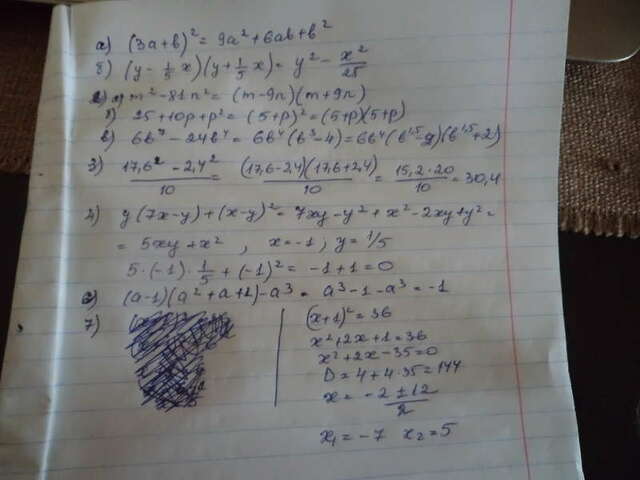 а) (3a+b)² = 9a² + 6ab + b²
б) (y - 1/5 x)(y + 1/5 x) = y² - x²/25
2) а) m² - 81n² = (m-9n)(m+9n)
б) 25 + 10p + p² = (5+p)² = (5+p)(5+p)
в) 6b⁷ - 24b⁴ = 6b⁴(b³-4) = 6b⁴(b¹·⁵-2)(b¹·⁵+2)
3) 17,6² - 2,4² / 10 = (17,6-2,4)(17,6+2,4) / 10 = 15,2·20 / 10 = 30,4
4) y(7x-y) + (x-y)² = 7xy - y² + x² - 2xy + y² =
= 5xy + x² , x = -1 ; y = 1/5
5·(-1)·1/5 + (-1)² = -1 + 1 = 0
6) (a-1)(a² + a + 1) - a³ = a³ - 1 - a³ = -1
7) (x+1)² = 36
x² + 2x + 1 = 36
x² + 2x - 35 = 0
D = 4 + 4·35 = 144
x = -2 ± 12 / 2
x₁ = -7 x₂ = 5